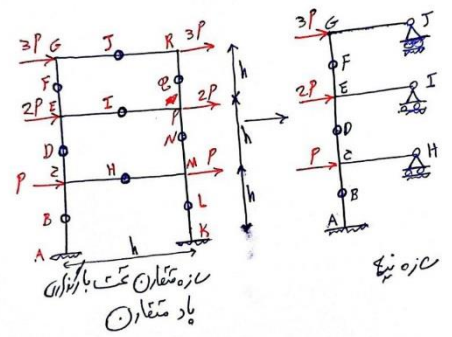 3P G J R 3P
F Q
2P E I P 2P
D N
P C H M P
B L
A K
h
h
h
h
سازه متقارن تحت بارگذاری
پاد متقارن
3P G J
F
2P E I
D
P C H
B
A
سازه نیم